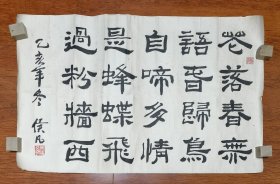 花落春無
語旾歸鳥
自啼多情
是蜂蝶飛
過粉牆西
乙亥年冬